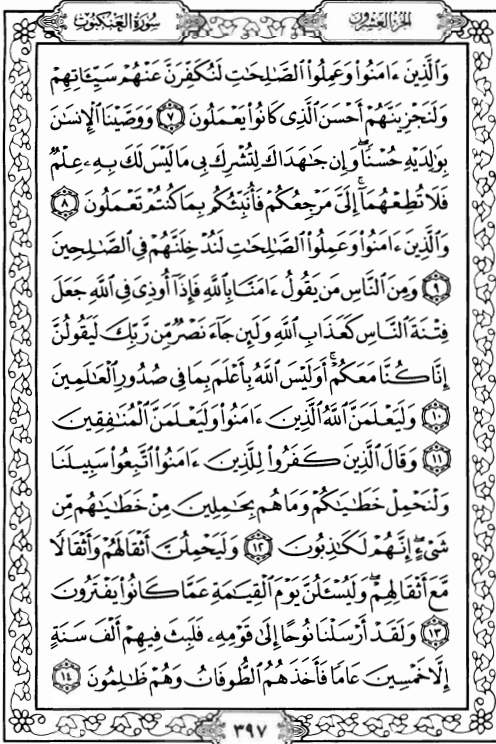 سورة العنكبوت
الجزء العشرون
وَالَّذِينَ ءَامَنُوا۟ وَعَمِلُوا۟ الصَّـٰلِحَـٰتِ لَنُكَفِّرَنَّ عَنْهُمْ سَيِّـَٔاتِهِمْ
وَلَنَجْزِيَنَّهُمْ أَحْسَنَ الَّذِى كَانُوا۟ يَعْمَلُونَ ٧ وَوَصَّيْنَا الْإِنسَـٰنَ
بِوَٰلِدَيْهِ حُسْنًا ۖ وَإِن جَـٰهَدَاكَ لِتُشْرِكَ بِى مَا لَيْسَ لَكَ بِهِۦ عِلْمٌ
فَلَا تُطِعْهُمَآ ۚ إِلَىَّ مَرْجِعُكُمْ فَأُنَبِّئُكُم بِمَا كُنتُمْ تَعْمَلُونَ ٨
وَالَّذِينَ ءَامَنُوا۟ وَعَمِلُوا۟ الصَّـٰلِحَـٰتِ لَنُدْخِلَنَّهُمْ فِى الصَّـٰلِحِينَ
٩ وَمِنَ النَّاسِ مَن يَقُولُ ءَامَنَّا بِاللَّهِ فَإِذَآ أُوذِىَ فِى اللَّهِ جَعَلَ
فِتْنَةَ النَّاسِ كَعَذَابِ اللَّهِ وَلَئِن جَآءَ نَصْرٌ مِّن رَّبِّكَ لَيَقُولُنَّ
إِنَّا كُنَّا مَعَكُمْ ۚ أَوَلَيْسَ اللَّهُ بِأَعْلَمَ بِمَا فِى صُدُورِ الْعَـٰلَمِينَ
١٠ وَلَيَعْلَمَنَّ اللَّهُ الَّذِينَ ءَامَنُوا۟ وَلَيَعْلَمَنَّ الْمُنَـٰفِقِينَ
١١ وَقَالَ الَّذِينَ كَفَرُوا۟ لِلَّذِينَ ءَامَنُوا۟ اتَّبِعُوا۟ سَبِيلَنَا
وَلْنَحْمِلْ خَطَـٰيَـٰكُمْ وَمَا هُم بِحَـٰمِلِينَ مِنْ خَطَـٰيَـٰهُم مِّن
شَىْءٍ ۖ إِنَّهُمْ لَكَـٰذِبُونَ ١٢ وَلَيَحْمِلُنَّ أَثْقَالَهُمْ وَأَثْقَالًا
مَّعَ أَثْقَالِهِمْ ۖ وَلَيُسْـَٔلُنَّ يَوْمَ الْقِيَـٰمَةِ عَمَّا كَانُوا۟ يَفْتَرُونَ
١٣ وَلَقَدْ أَرْسَلْنَا نُوحًا إِلَىٰ قَوْمِهِۦ فَلَبِثَ فِيهِمْ أَلْفَ سَنَةٍ
إِلَّا خَمْسِينَ عَامًا فَأَخَذَهُمُ الطُّوفَانُ وَهُمْ ظَـٰلِمُونَ ١٤
٣٩٧